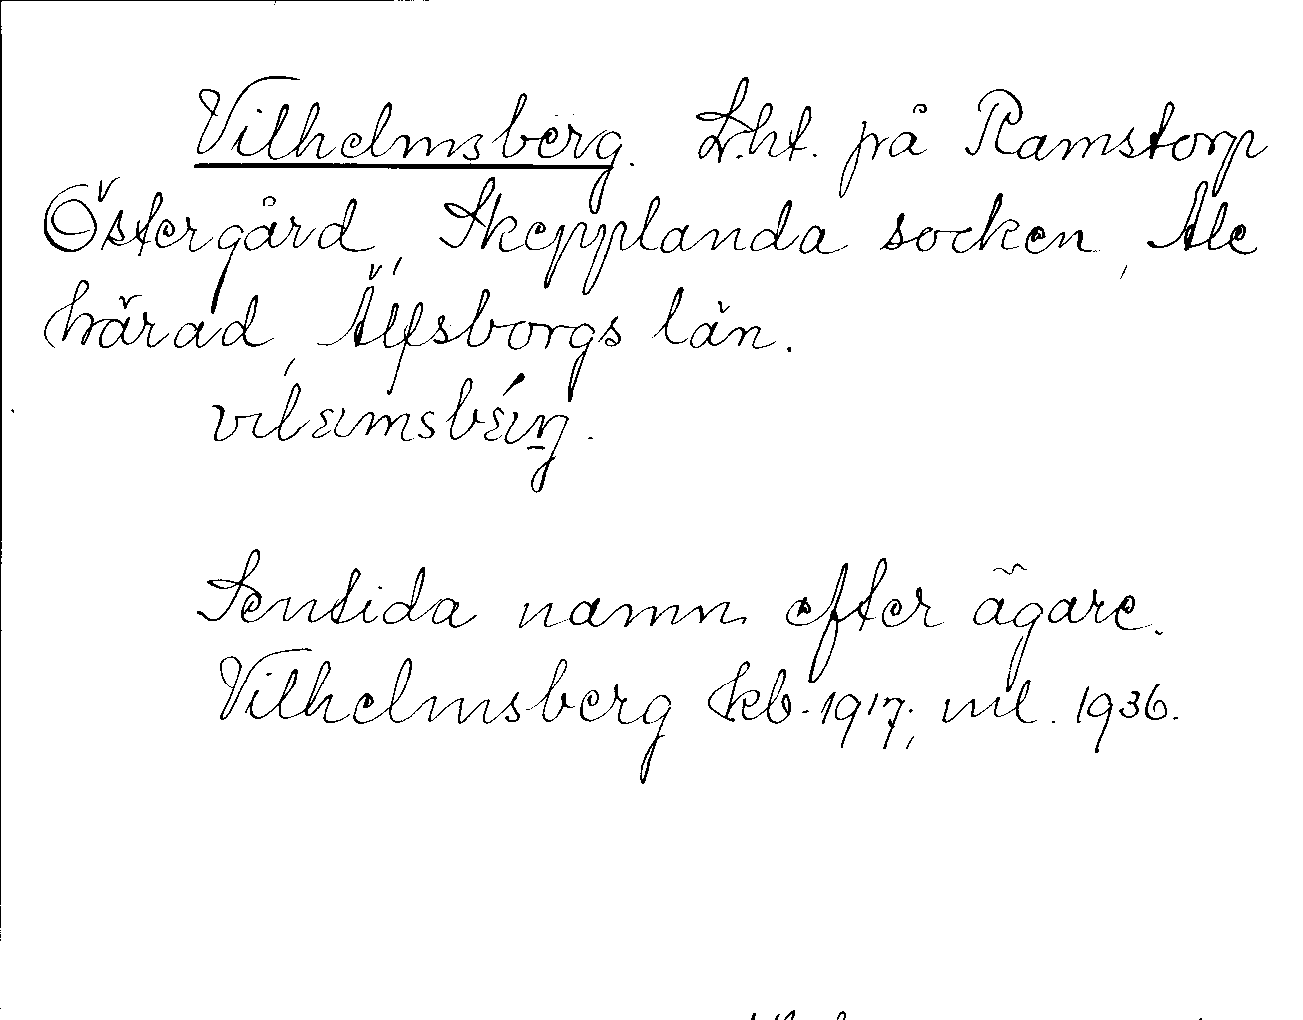 Vilhelmsberg. Lht. på Ramstorp
Östergård, Skepplanda socken, Ale
härad, Älfsborgs län.
Sentida namn efter ägare.
Vilhelmsberg kb. 1917, ml. 1936.